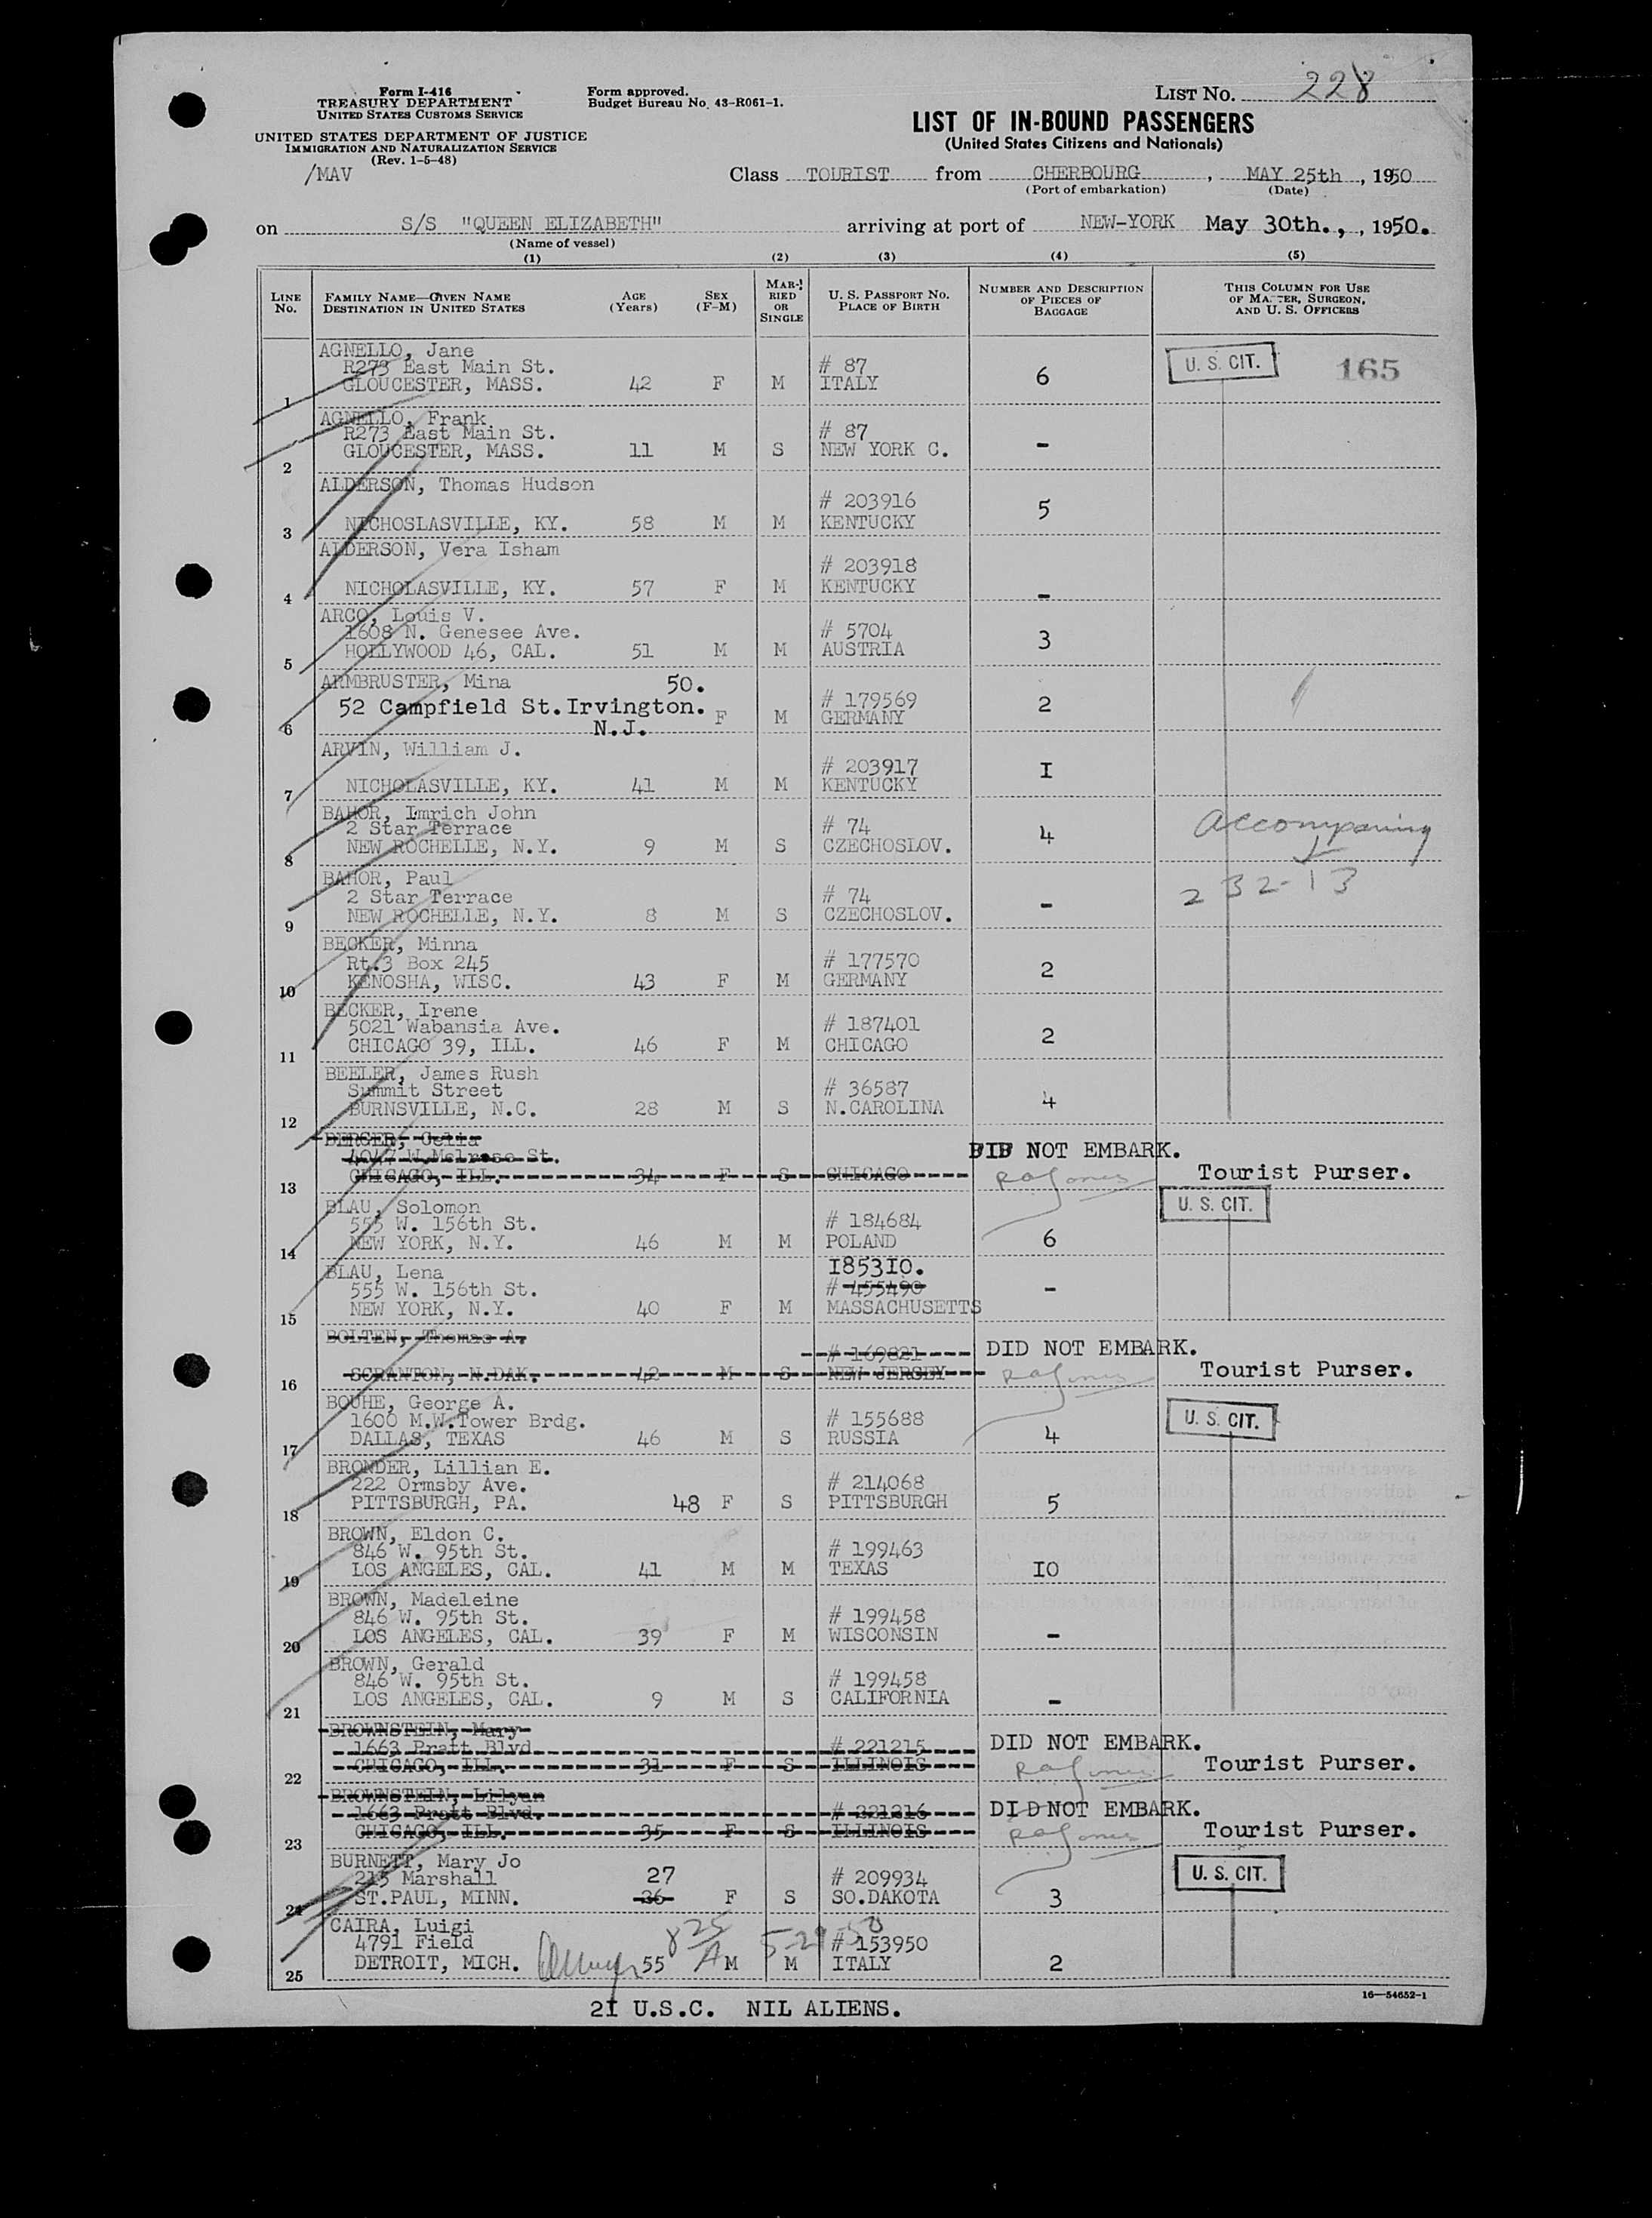 Form I-416
TREASURY DEPARTMENT
UNITED STATES CUSTOMS SERVICE
UNITED STATES DEPARTMENT OF JUSTICE
IMMIGRATION AND NATURALIZATION SERVICE
(Rev. 1-5-48)
/MAV
Form approved.
Budget Bureau No. 43-R061-1.
LIST No. 228
LIST OF IN-BOUND PASSENGERS
(United States Citizens and Nationals)
Class TOURIST from CHERBOURG, MAY 25th, 1950
(Port of embarkation) (Date)
on S/S "QUEEN ELIZABETH" arriving at port of NEW-YORK May 30th., , 1950.
(Name of vessel)
(1) (2) (3) (4) (5)
LINE No. FAMILY NAME—GIVEN NAME DESTINATION IN UNITED STATES AGE (Years) SEX (F-M) MARRIED OR SINGLE U. S. PASSPORT No. PLACE OF BIRTH NUMBER AND DESCRIPTION OF PIECES OF BAGGAGE THIS COLUMN FOR USE OF MASTER, SURGEON, AND U. S. OFFICERS
AGNELLO, Jane
R273 East Main St. # 87 U. S. CIT. 165
1 GLOUCESTER, MASS. 42 F M ITALY 6
AGNELLO, Frank
R273 East Main St. # 87
2 GLOUCESTER, MASS. 11 M S NEW YORK C. -
ALDERSON, Thomas Hudson
# 203916
3 NICHOSLASVILLE, KY. 58 M M KENTUCKY 5
ALDERSON, Vera Isham
# 203918
4 NICHOLASVILLE, KY. 57 F M KENTUCKY -
ARCO, Louis V.
1608 N. Genesee Ave. # 5704
5 HOLLYWOOD 46, CAL. 51 M M AUSTRIA 3
ARMBRUSTER, Mina 50.
52 Campfield St. Irvington. # 179569
6 N.J. F M GERMANY 2
ARVIN, William J.
# 203917
7 NICHOLASVILLE, KY. 41 M M KENTUCKY I
BAHOR, Imrich John
2 Star Terrace # 74 accompaning
8 NEW ROCHELLE, N.Y. 9 M S CZECHOSLOV. 4
BAHOR, Paul
2 Star Terrace # 74 232-13
9 NEW ROCHELLE, N.Y. 8 M S CZECHOSLOV. -
BECKER, Minna
Rt.3 Box 245 # 177570
10 KENOSHA, WISC. 43 F M GERMANY 2
BECKER, Irene
5021 Wabansia Ave. # 187401
11 CHICAGO 39, ILL. 46 F M CHICAGO 2
BEELER, James Rush
Summit Street # 36587
12 BURNSVILLE, N.C. 28 M S N.CAROLINA 4
BERGER, Celia
4047 W.Melrose St. DID NOT EMBARK.
13 CHICAGO, ILL. 34 F S CHICAGO Tourist Purser.
BLAU, Solomon U. S. CIT.
555 W. 156th St. # 184684
14 NEW YORK, N.Y. 46 M M POLAND 6
BLAU, Lena I853I0.
555 W. 156th St. # 455490
15 NEW YORK, N.Y. 40 F M MASSACHUSETTS -
BOLTEN, Thomas A.
# 169821 DID NOT EMBARK.
16 SCRANTON, N.DAK. 42 M S NEW JERSEY Tourist Purser.
BOUHE, George A.
1600 M.W.Tower Brdg. # 155688 U. S. CIT.
17 DALLAS, TEXAS 46 M S RUSSIA 4
BRONDER, Lillian E.
222 Ormsby Ave. # 214068
18 PITTSBURGH, PA. 48 F S PITTSBURGH 5
BROWN, Eldon C.
846 W. 95th St. # 199463
19 LOS ANGELES, CAL. 41 M M TEXAS I0
BROWN, Madeleine
846 W. 95th St. # 199458
20 LOS ANGELES, CAL. 39 F M WISCONSIN -
BROWN, Gerald
846 W. 95th St. # 199458
21 LOS ANGELES, CAL. 9 M S CALIFORNIA -
BROWNSTEIN, Mary
1663 Pratt Blvd # 221215 DID NOT EMBARK.
22 CHICAGO, ILL. 31 F S ILLINOIS Tourist Purser.
BROWNSTEIN, Lilyan
1663 Pratt Blvd. # 221216 DID NOT EMBARK.
23 CHICAGO, ILL. 35 F S ILLINOIS Tourist Purser.
BURNETT, Mary Jo
215 Marshall 27 # 209934 U. S. CIT.
24 ST.PAUL, MINN. 26 F S SO.DAKOTA 3
CAIRA, Luigi 825 5-29-50
4791 Field A # 153950
25 DETROIT, MICH. 55 M M ITALY 2
16—54652-1
2I U.S.C. NIL ALIENS.